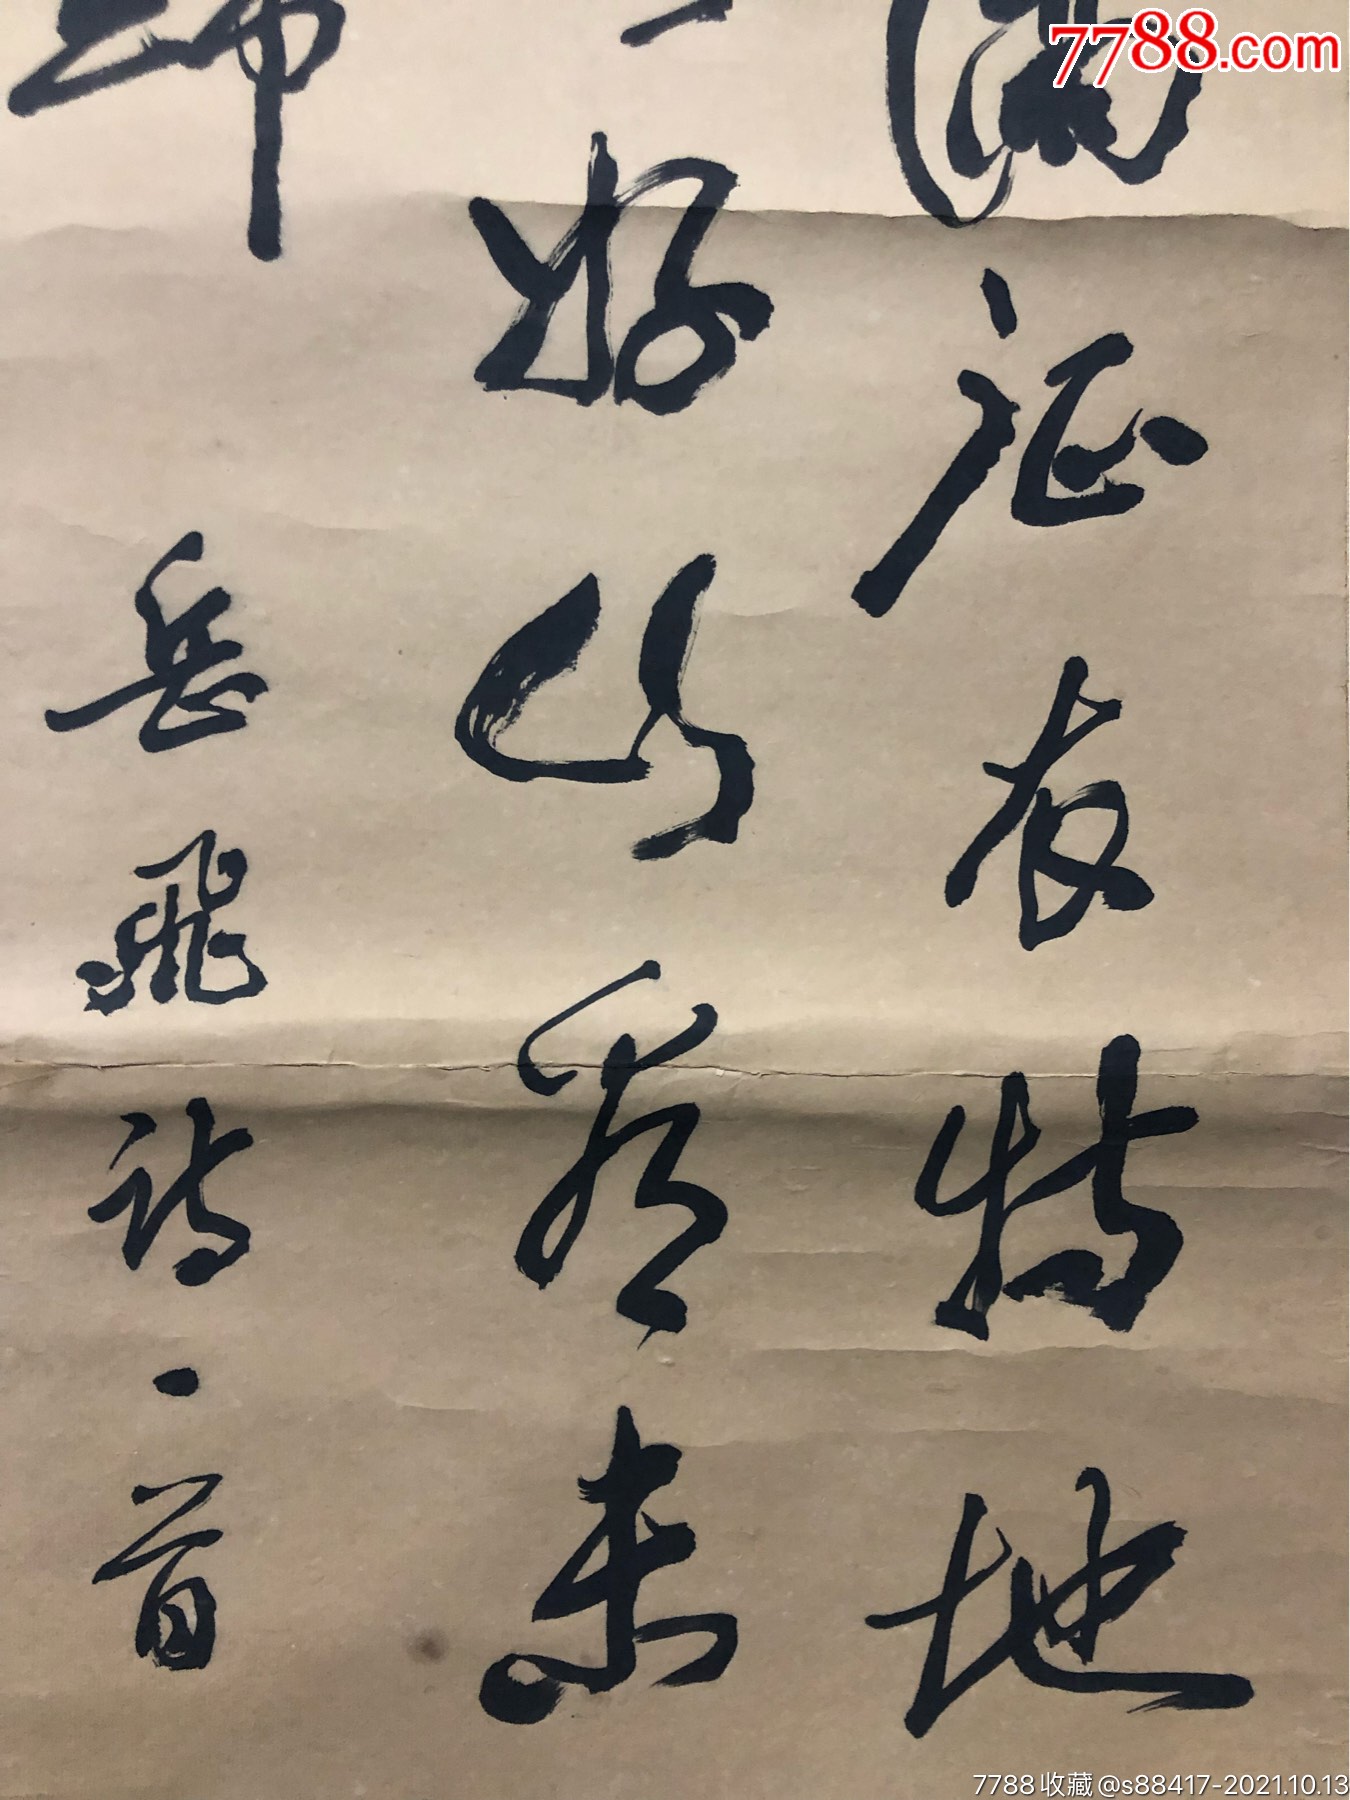 7788.com
满征衣特地
好山看未
归
岳飞诗一首
7788收藏@s88417-2021.10.13